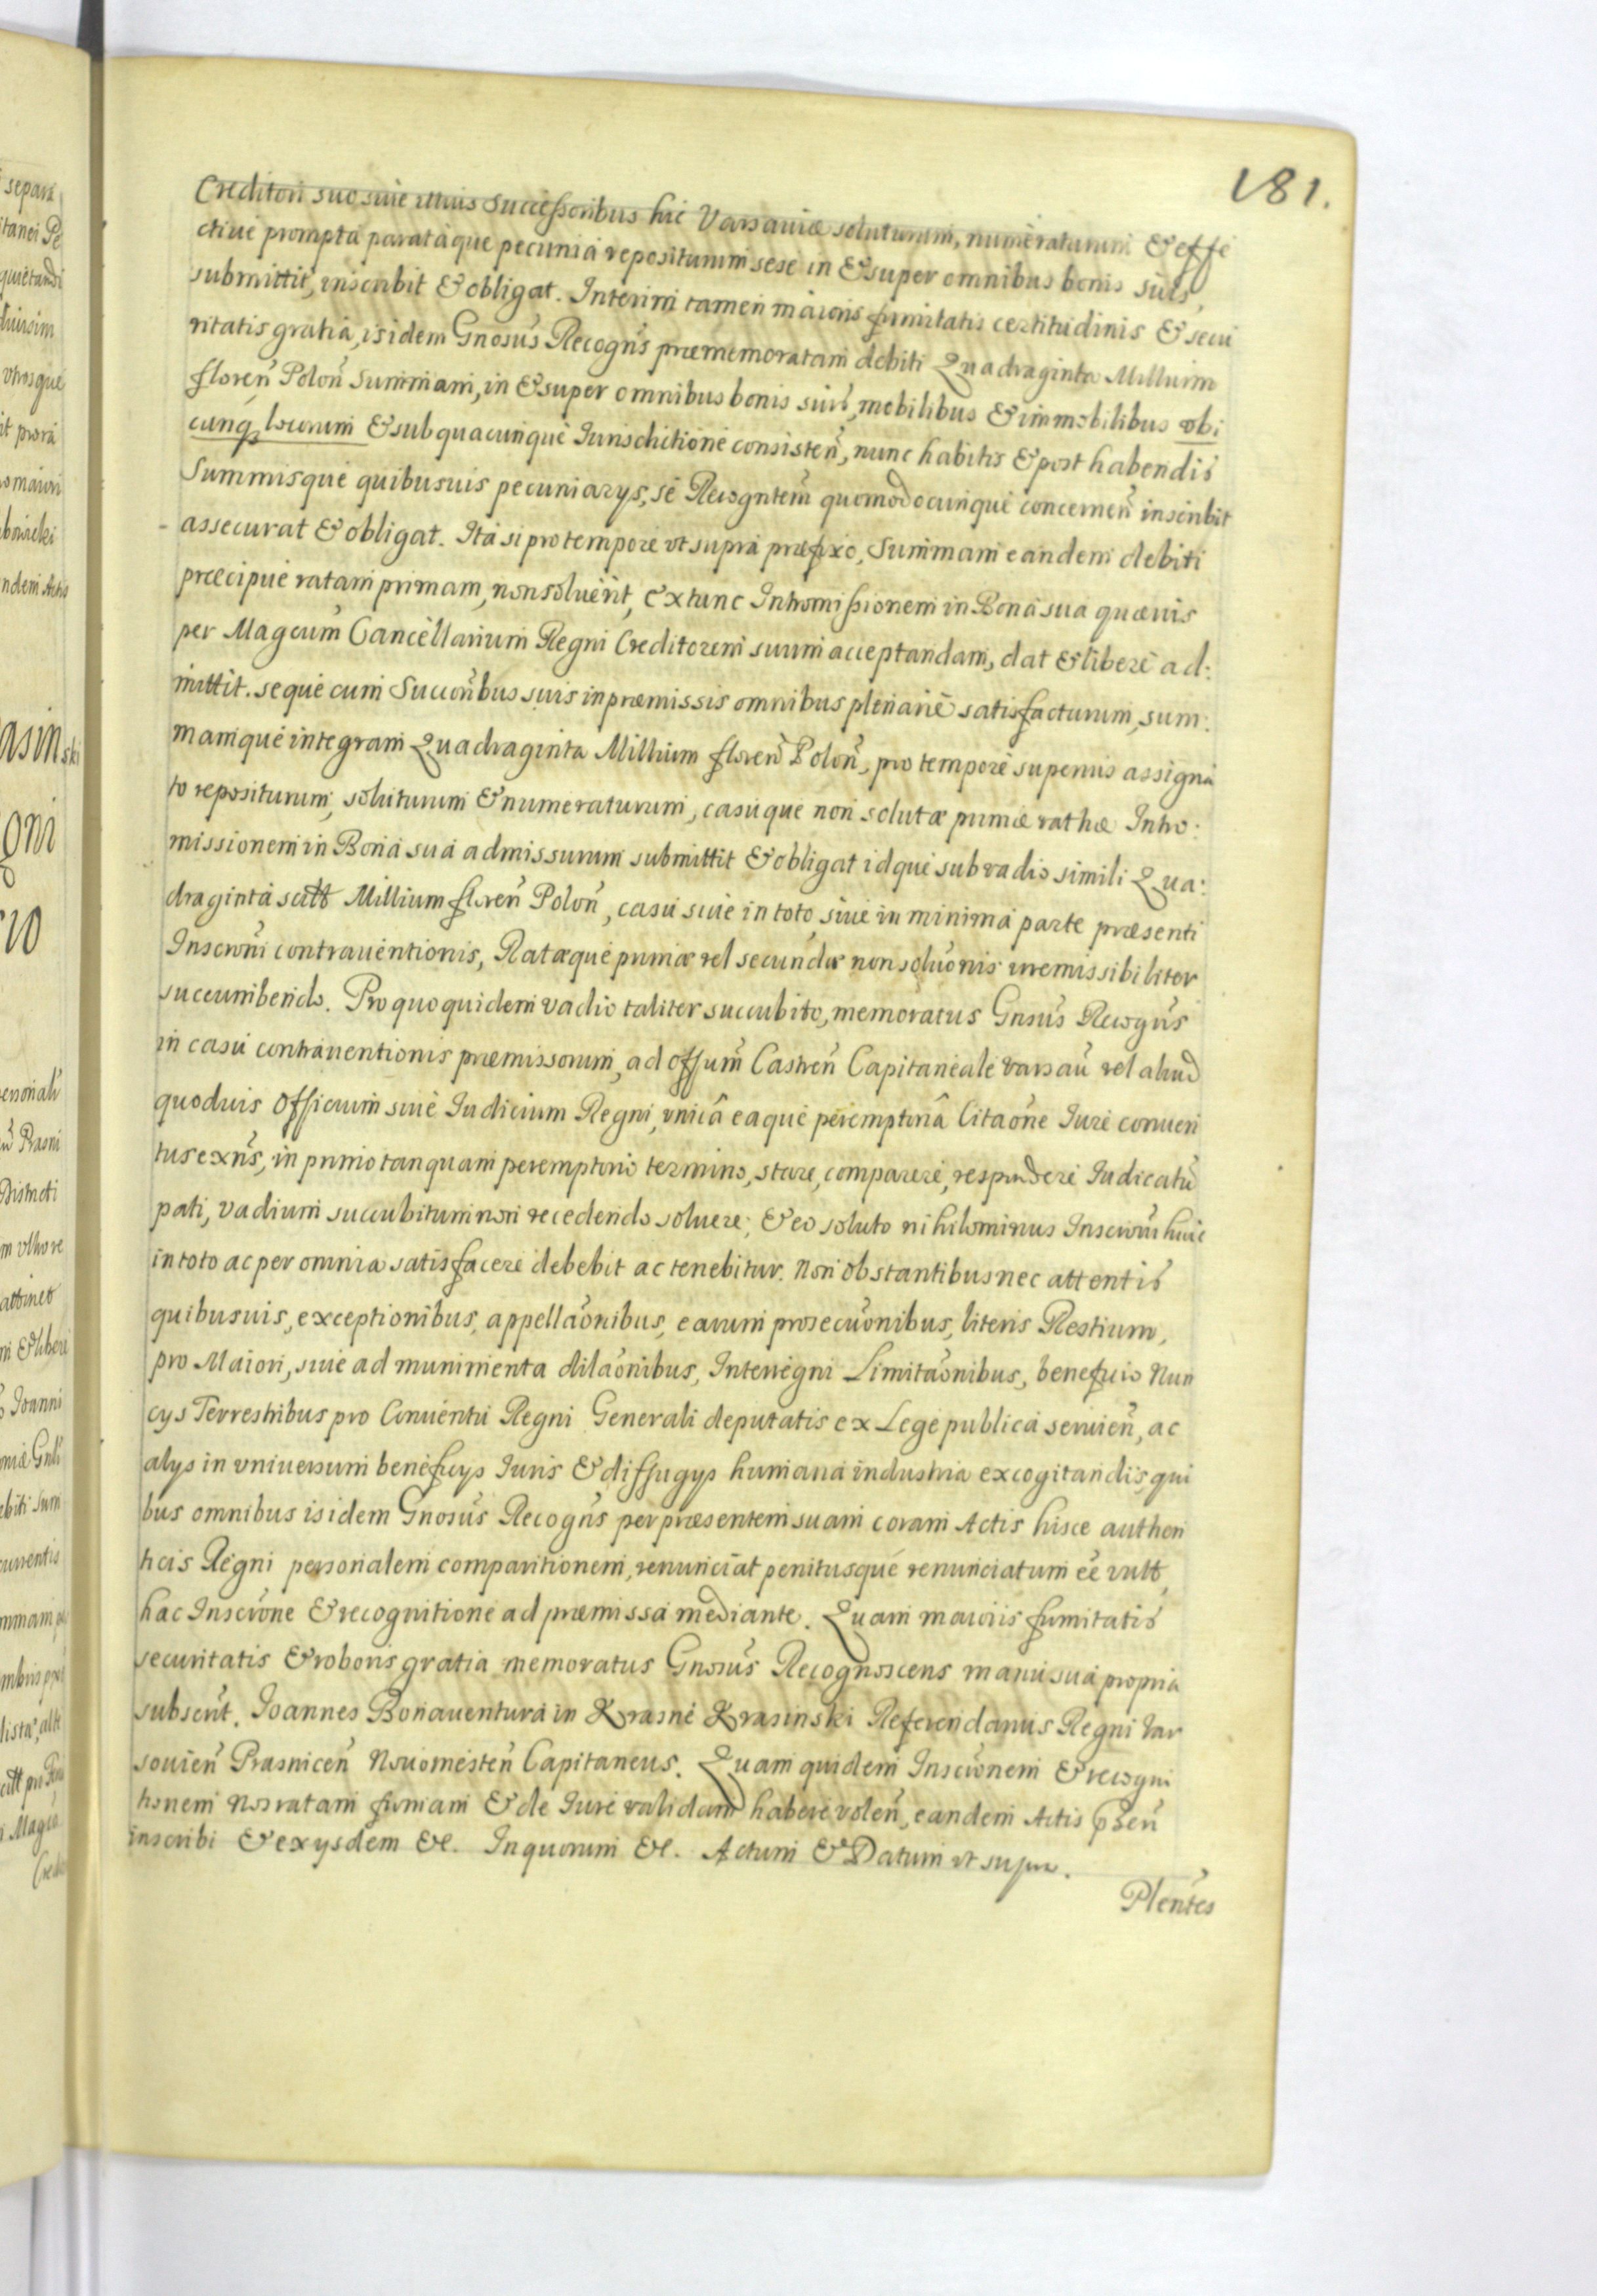 181.
Creditori suo siue illius Successoribus hic Varsauiæ soluturum, numeraturum & effe
ctiue prompta parataque pecunia repositurum sese in & super omnibus bonis suis
submittit, inscribit & obligat. Interim tamen maioris firmitatis certitudinis & secu
ritatis gratia, isidem Gnosus Recogns præmemoratam debiti Quadraginta Millium
floren Polon Summam, in & super omnibus bonis suis, mobilibus & immobilibus vbi
cunq locorum & sub quacunque Iurisdictione consisten, nunc habitis & post habendis
Summisque quibusuis pecuniarys, se Recogntem quomodocunque concernen inscribit
assecurat & obligat. Ita si pro tempore vt supra præfixo, Summam eandem debiti
præcipue ratam primam, non soluerit, extunc Intromissionem in Bona sua quæuis
per Magcum Cancellarium Regni Creditorem suum acceptandam, dat & libere ad:
mittit. seque cum Succoribus suis in præmissis omnibus plenarie satisfacturum, sum:
mamque integram Quadraginta Millium floren Polon, pro tempore superius assigna
to repositurum, soluturum & numeraturum, casuque non solutæ primæ rathæ Intro:
missionem in Bona sua admissurum submittit & obligat idque sub vadio simili Qua:
draginta scilt Millium floren Polon, casu siue in toto, siue in minima parte præsenti
Inscroni contrauentionis, Ratæque primæ vel secundæ non soluonis irremissibiliter
succumbendo. Pro quo quidem vadio taliter succubito, memoratus Gnsus Recogns
in casu contrauentionis præmissorum, ad Offum Castren Capitaneale Varsau vel aliud
quoduis Officium siue Iudicium Regni, vnica eaque peremptoria Citaone Iure conuen
tus exns, in primo tanquam peremptorio termino, stare, comparere, respondere Iudicatu
pati, vadium succubitum non recedendo soluere; & eo soluto nihilominus Inscroni huic
in toto ac per omnia satisfacere debebit ac tenebitur. Non obstantibus nec attentis
quibusuis, exceptionibus, appellaonibus, earum prosecuonibus, literis Restium,
pro Maiori, siue ad munimenta dilaonibus, Interregni Limitaonibus, beneficio Nun
cys Terrestribus pro Conuentu Regni Generali deputatis ex Lege publica seruien, ac
alys in vniuersum beneficys Iuris & diffugys humana industria excogitandis, qui
bus omnibus isidem Gnosus Recogns per præsentem suam coram Actis hisce authen
ticis Regni personalem comparitionem, renunciat penitusque renunciatum ee vult,
hac Inscrone & recognitione ad præmissa mediante. Quam maioris firmitatis
securitatis & roboris gratia memoratus Gnosus Recognoscens manu sua propria
subscrt. Ioannes Bonauentura in Krasne Krasinski Referendarius Regni Var
souien Prasnicen Nouomiesten Capitaneus. Quam quidem Inscronem & recogni
tionem Nos ratam firmam & de Iure validam habere volen, eandem Actis psen
inscribi & ex ysdem &c. In quorum &c. Actum & Datum vt supra.
Plentes